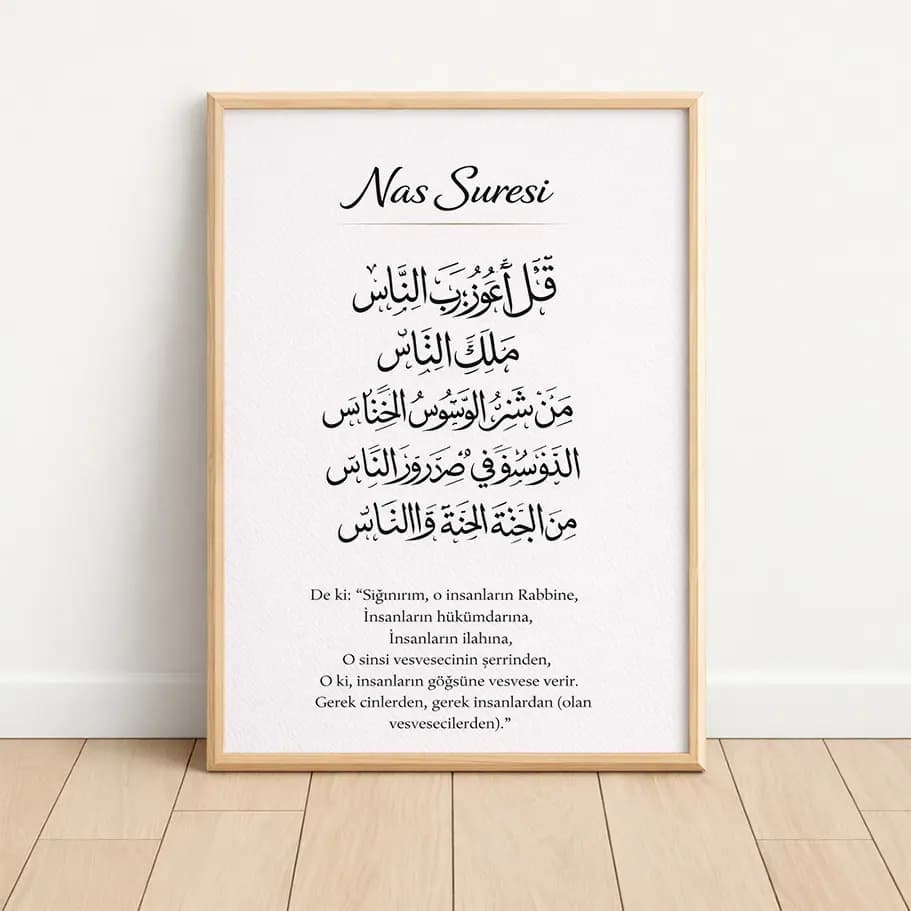 Nas Suresi
قُل أَعُوزُ بِرَبَ النَّاس
مَلِكَ النَّاسْ
مَنْ شَرُّ الوَسْوُسُ الخَنَّاسَ
في النَّاسَ
مِنَ الجَنَّةَ الحَنَةَ وَاالنَّاسّ
De ki: “Sığınırım, o insanların Rabbine,
İnsanların hükümdarına,
İnsanların ilahına,
O sinsi vesvesecinin şerrinden,
O ki, insanların göğsüne vesvese verir.
Gerek cinlerden, gerek insanlardan (olan
vesvesecilerden).”